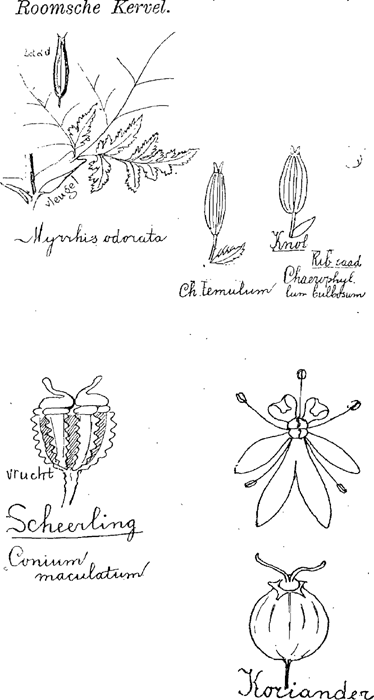 Roomsche Kervel.
vleugel
Myrrhis odorata
Ch. temulum
Knol
Ribzaad
Chaerophyl.
lum bulbosum
vrucht
Scheerling
Conium
maculatum
Koriander